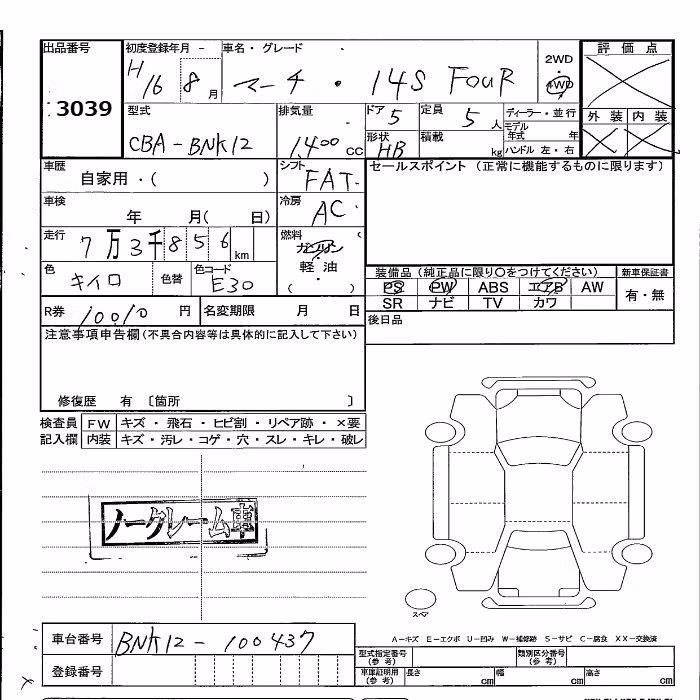 出品番号 初度登録年月 - 車名・グレード 評価点
3039 H16 8月 マーチ・14S FOUR 2WD 4WD
型式 排気量 ドア 定員 ディーラー・並行 外装 内装
CBA-BNK12 1,400cc 5 5人 モデル年式 年
形状 HB 積載 kg ハンドル 左・右
車歴 自家用・( ) シフト FAT セールスポイント (正常に機能するものに限ります)
車検 年 月( 日) 冷房 AC
走行 7万3千856km 燃料 ガソリン
軽油
( )
色 キイロ 色替 色コード E30 装備品 (純正品に限り○をつけてください) 新車保証書
PS PW ABS エアB AW 有・無
SR ナビ TV カワ
R券 10010円 名変期限 月 日 後日品
注意事項申告欄(不具合内容等は具体的に記入して下さい)
修復歴 有 〔箇所 〕
検査員 FW キズ・飛石・ヒビ割・リペア跡・×要
記入欄 内装 キズ・汚レ・コゲ・穴・スレ・キレ・破レ
ノークレーム車
スペア
A-キズ E-エクボ U-凹み W-補修跡 S-サビ C-腐食 XX-交換済
車台番号 BNK12-100437
型式指定番号(参考) 類別区分番号(参考)
登録番号 車庫証明用(参考) 長さ cm 幅 cm 高さ cm